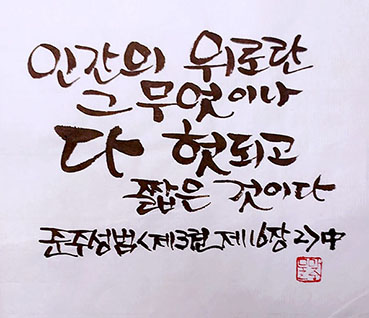 인간의 위로란
그 무엇이나
다 헛되고
짧은 것이다
준주성범<제3편 제16장 2>中